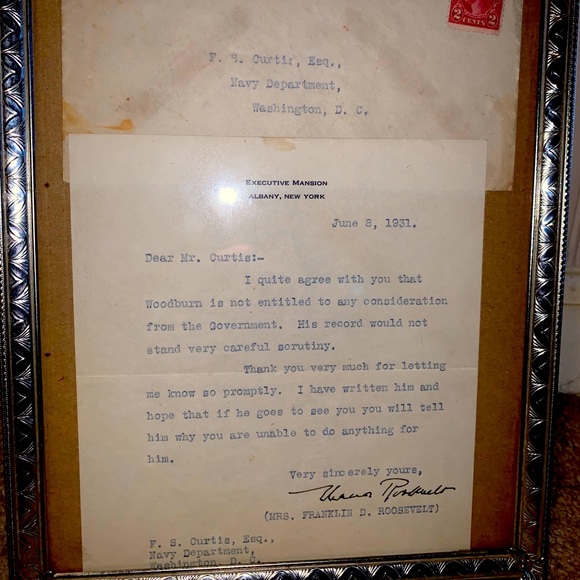 2 CENTS 2
F. S. Curtis, Esq.,
Navy Department,
Washington, D. C.
EXECUTIVE MANSION
ALBANY, NEW YORK
June 8, 1931.
Dear Mr. Curtis:-
I quite agree with you that
Woodburn is not entitled to any consideration
from the Government. His record would not
stand very careful scrutiny.
Thank you very much for letting
me know so promptly. I have written him and
hope that if he goes to see you you will tell
him why you are unable to do anything for
him.
Very sincerely yours,
Eleanor Roosevelt
(MRS. FRANKLIN D. ROOSEVELT)
F. S. Curtis, Esq.,
Navy Department,
Washington, D. C.